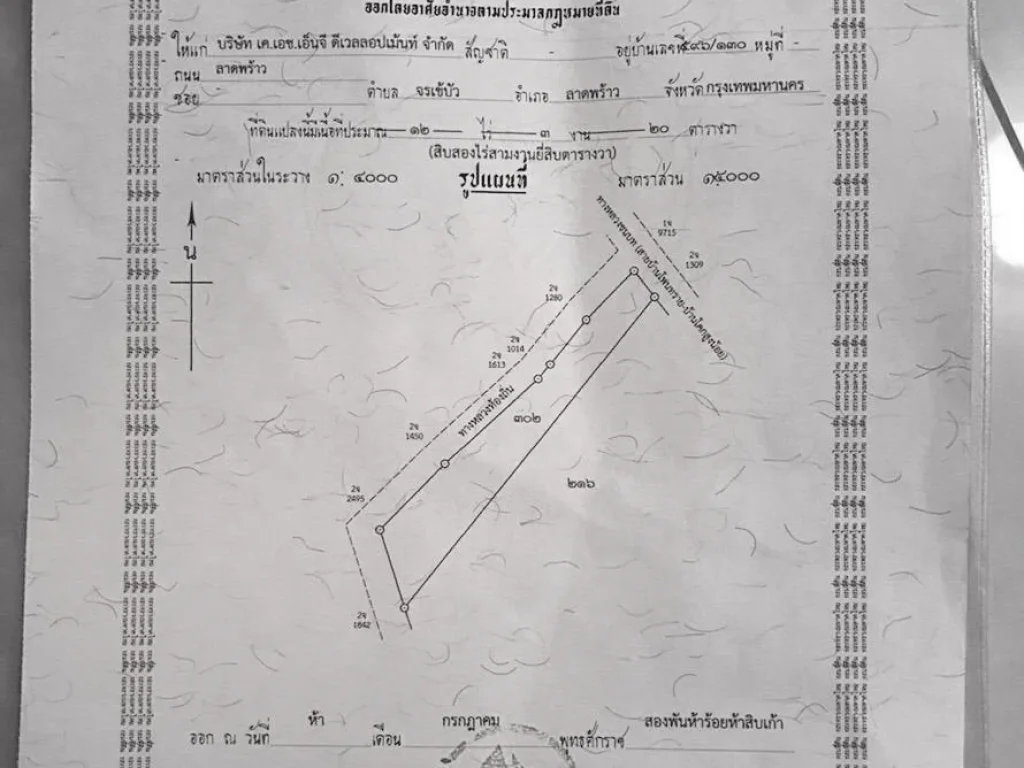 ออกโดยอาศัยอำนาจตามประมวลกฎหมายที่ดิน
ให้แก่ บริษัท เค.เอช.เอ็นจี ดีเวลลอปเม้นท์ จำกัด สัญชาติ - อยู่บ้านเลขที่ ๕๙๖/๑๓๐ หมู่ที่ -
ถนน ลาดพร้าว
ซอย ตำบล จรเข้บัว อำเภอ ลาดพร้าว จังหวัด กรุงเทพมหานคร
ที่ดินแปลงนี้มีเนื้อที่ประมาณ ๑๒ ไร่ ๓ งาน ๒๐ ตารางวา
(สิบสองไร่สามงานยี่สิบตารางวา)
มาตราส่วนในระวาง ๑: ๔๐๐๐ รูปแผนที่ มาตราส่วน ๑:๔๐๐๐
น
ทางหลวงชนบท (สายบ้านโพนทราย-บ้านโคกสูงน้อย)
1จ
9715
2จ
1509
2จ
1280
2จ
1014
2จ
1613
ทางหลวงท้องถิ่น
2จ
1450
๓๐๒
๒๑๖
2จ
2495
2จ
1842
ออก ณ วันที่ ห้า เดือน กรกฎาคม พุทธศักราช สองพันห้าร้อยห้าสิบเก้า